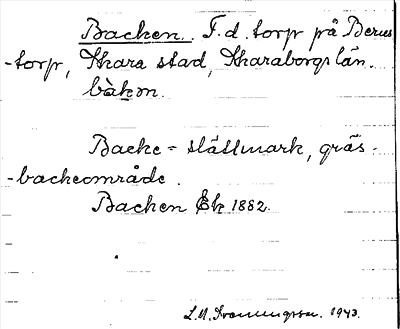 Backen. F.d. torp på Berus
-torp, Skara stad, Skaraborgs län.
bàkεn.
Backe = slättmark, gräs-
-backeområde.
Backen Ek 1882.
1943.